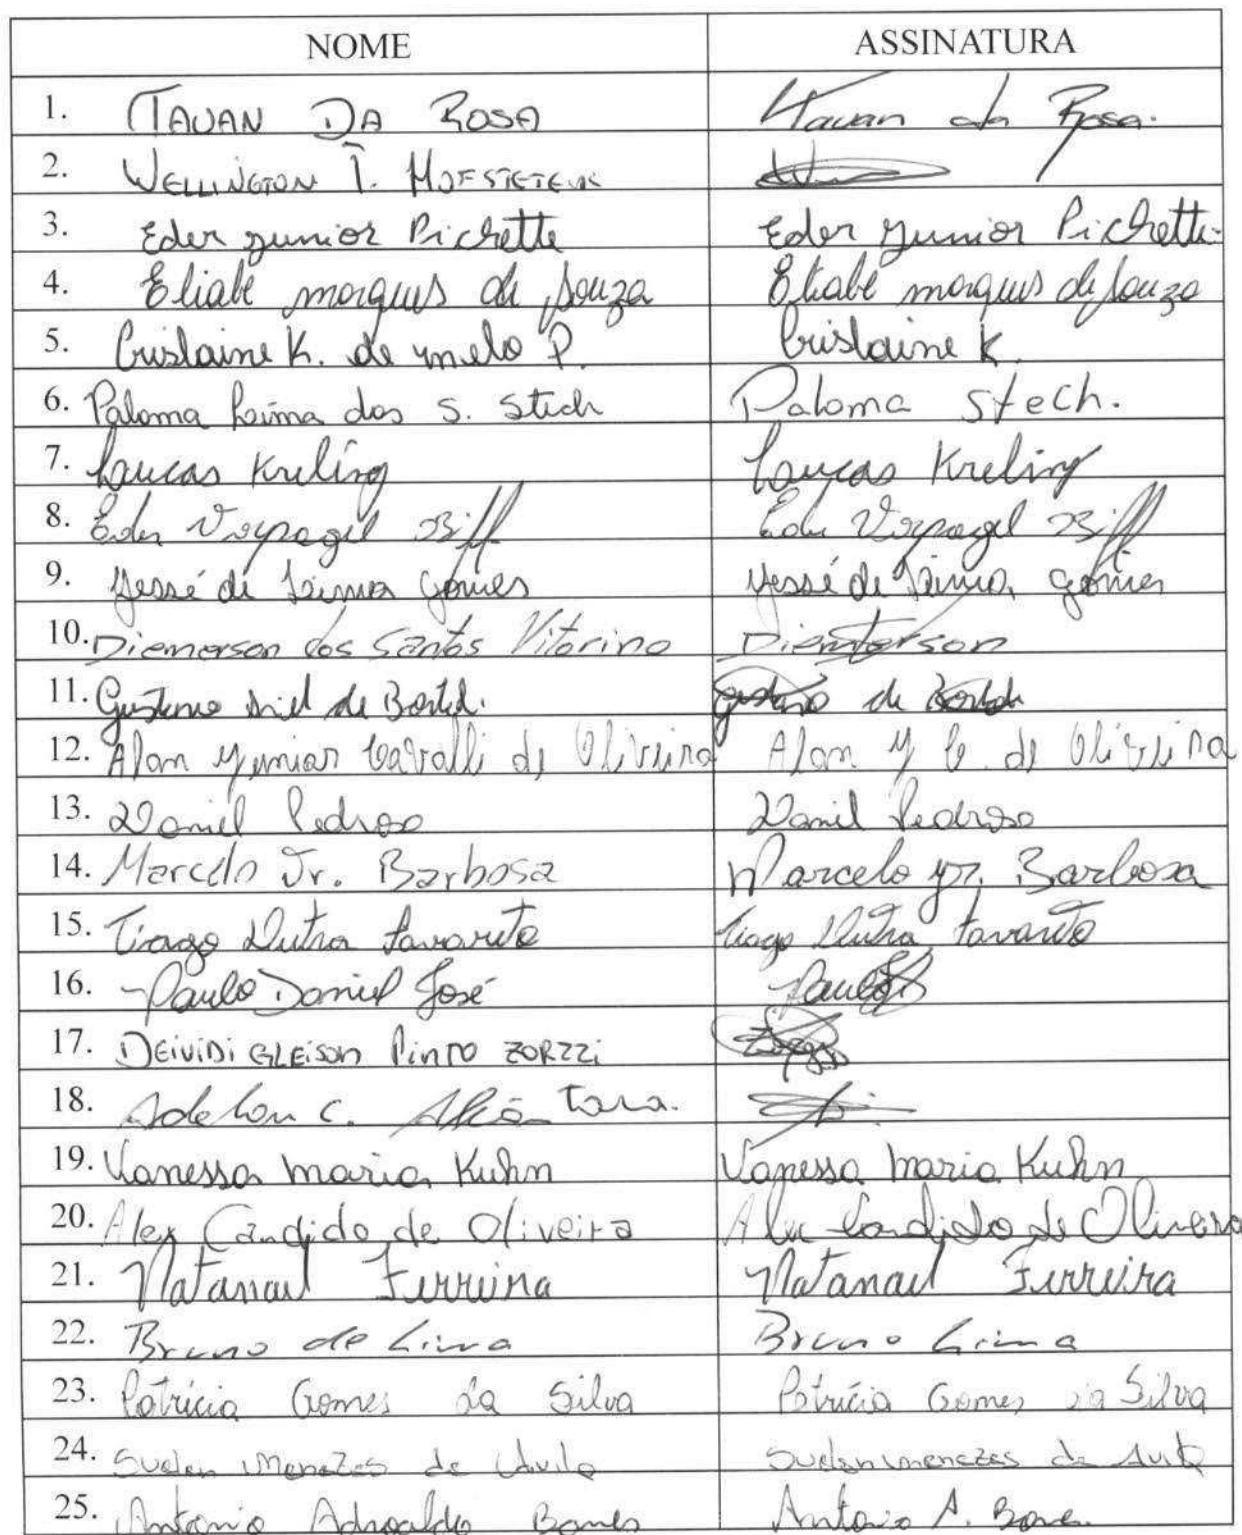 NOME ASSINATURA
1. TAUAN DA ROSA Tauan da Rosa.
2. WELLINGTON T.
3. Eder Junior Pichette Eder Junior Pichette
4. Eliabe marques de souza Eliabe marques de souza
5. Crislaine K. de melo P. Crislaine K.
6. Paloma Laima dos S. Stech Paloma Stech.
7. Laucas Kreling Laucas Kreling
8. Eder Vorpagel Biff Eder Vorpagel Biff
9. Jessé de Gomes Jessé de Gomes
10. Diemerson dos Santos Vitorino Diemerson
11. Gustavo de Gustavo de
12. Alan Junior Cavalli de Oliveira Alan J C. de Oliveira
13. Daniel Pedroso Daniel Pedroso
14. Marcelo Jr. Barbosa Marcelo Jr. Barbosa
15. Tiago Dutra Favareto Tiago Dutra Favareto
16. Paulo Daniel José Paulo
17. DEIVIDI GLEISON PINTO ZORZZI
18. C.
19. Vanessa maria Kuhn Vanessa maria Kuhn
20. Alex Candido de Oliveira Alex Candido de Oliveira
21. Natanael Ferreira Natanael Ferreira
22. Bruno de Lima Bruno Lima
23. Patrícia Gomes da Silva Patrícia Gomes da Silva
24. Suelen Menezes de Suelen menezes de
25. Antonio Adroaldo Antonio A.